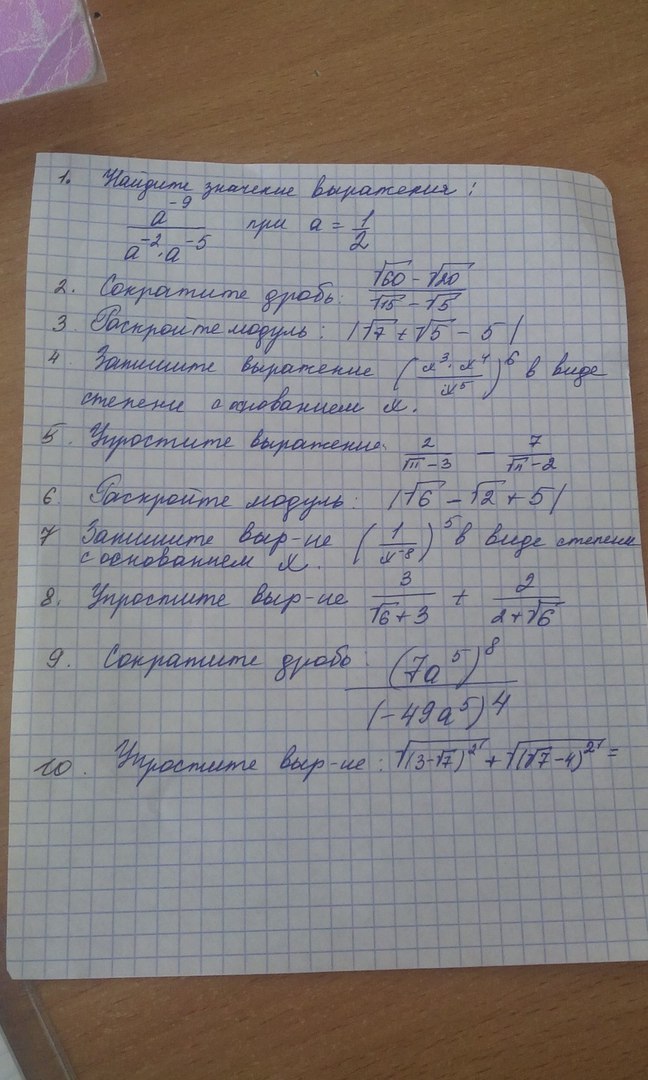 1. Найдите значение выражения:
a⁻⁹ / a⁻²·a⁻⁵ при a = 1/2
2. Сократите дробь: √60 - √20 / √15 - √5
3. Раскройте модуль: |√7 + √5 - 5|
4. Запишите выражение (x³·x⁴ / x⁵)⁶ в виде
степени с основанием x.
5. Упростите выражение: 2/√11-3 - 7/√11-2
6. Раскройте модуль: |√6 - √2 + 5|
7 Запишите выр-ие (1/x⁻⁸)⁵ в виде степени
с основанием x.
8. Упростите выр-ие 3/√6+3 + 2/2+√6
9. Сократите дробь: (7a⁵)⁸ / (-49a⁵)⁴
10. Упростите выр-ие: √(3-√7)² + √(√7-4)² =